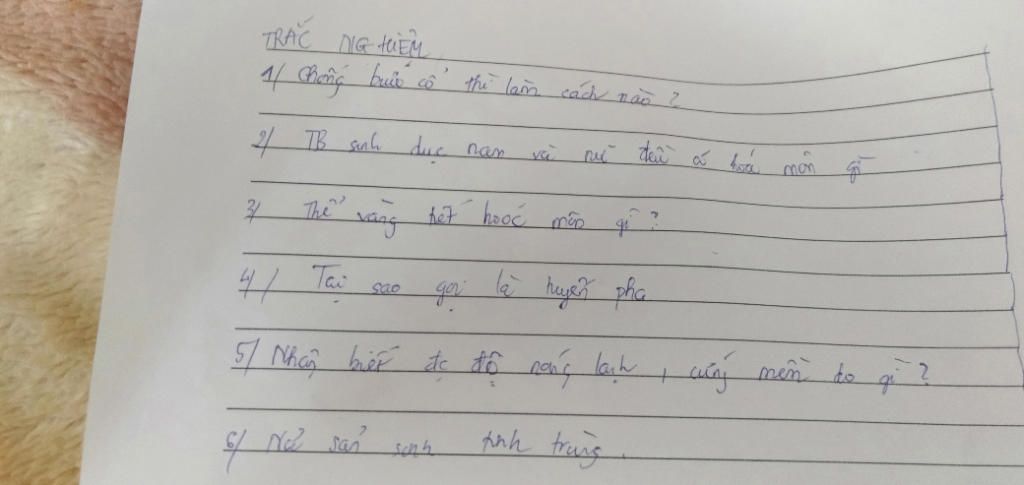 TRẮC NGHIỆM
1/ Chống bướu cổ thì làm cách nào ?
2/ TB sinh dục nam và nữ đều có hoá môn gì
3/ Thể vàng tiết hoóc môn gì ?
4/ Tại sao gọi là huyến pha
5/ Nhận biết đc độ nóng lạnh , cứng mềm do gì ?
6/ Nơi sản sinh tinh trùng .